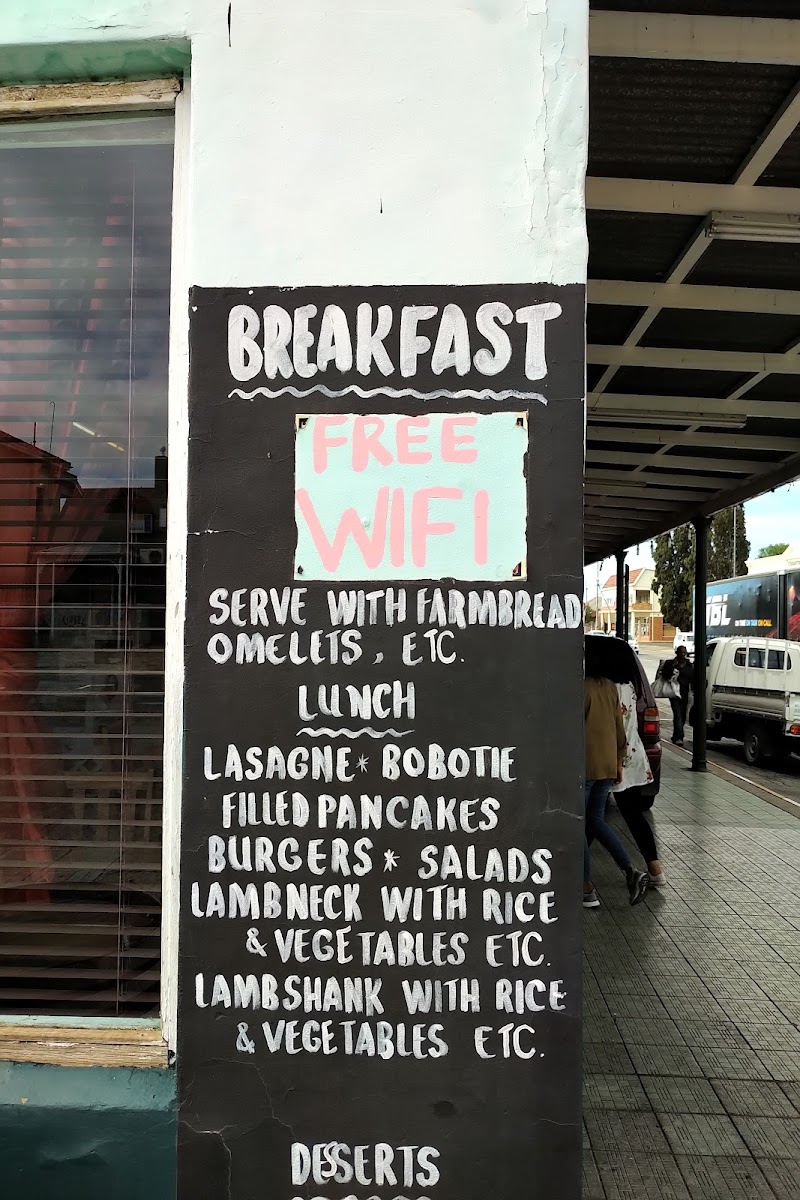 BREAKFAST
FREE
WIFI
SERVE WITH FARMBREAD
OMELETS, ETC.
LUNCH
LASAGNE * BOBOTIE
FILLED PANCAKES
BURGERS * SALADS
LAMBNECK WITH RICE
& VEGETABLES ETC.
LAMBSHANK WITH RICE
& VEGETABLES ETC.
DESSERTS